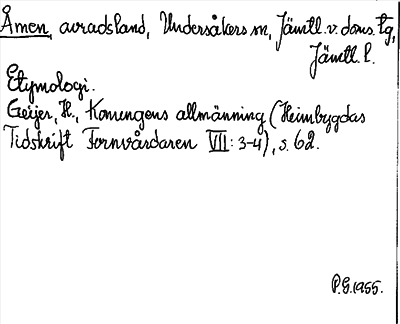 Åmen, avradsland, Undersåkers sn, Jämtl. v. doms. tg,
Jämtl. l.
Etymologi.
Geijer, H., Konungens allmänning (Heimbygdas
Tidskrift Fornvårdaren VII: 3-4), s. 62.
P.G. 1955.